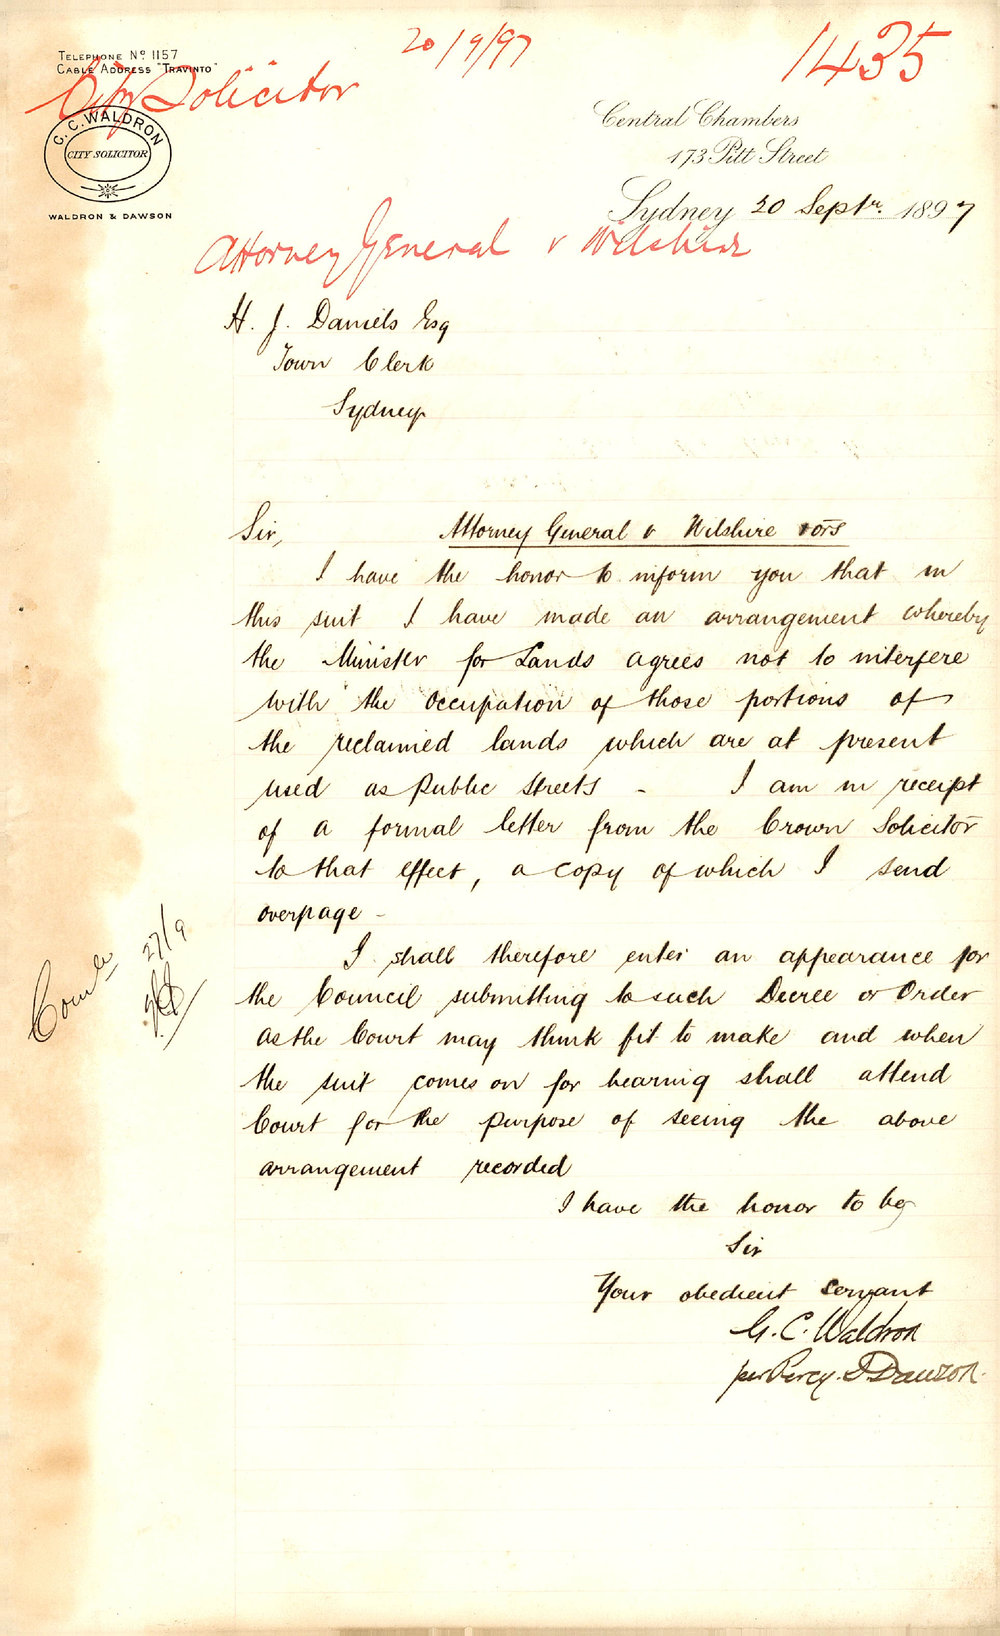 20/9/97
1435
Telephone No 1157
Cable Address "Travinto"
City Solicitor
G. C. WALDRON
CITY SOLICITOR
WALDRON & DAWSON
Central Chambers
173 Pitt Street
Sydney 20 Septr. 1897
Attorney General v Wilshire
H. J. Daniels Esq
Town Clerk
Sydney
Sir, Attorney General v Wilshire & ors
I have the honor to inform you that in
this suit I have made an arrangement whereby
the Minister for Lands agrees not to interfere
with the occupation of those portions of
the reclaimed lands which are at present
used as Public Streets - I am in receipt
of a formal letter from the Crown Solicitor
to that effect, a copy of which I send
overpage -
I shall therefore enter an appearance for
the Council submitting to such Decree or Order
as the Court may think fit to make and when
the suit comes on for hearing shall attend
Court for the purpose of seeing the above
arrangement recorded
27/9
I have the honor to be
Sir
Your obedient servant
G. C. Waldron
per Percy. J Dawson